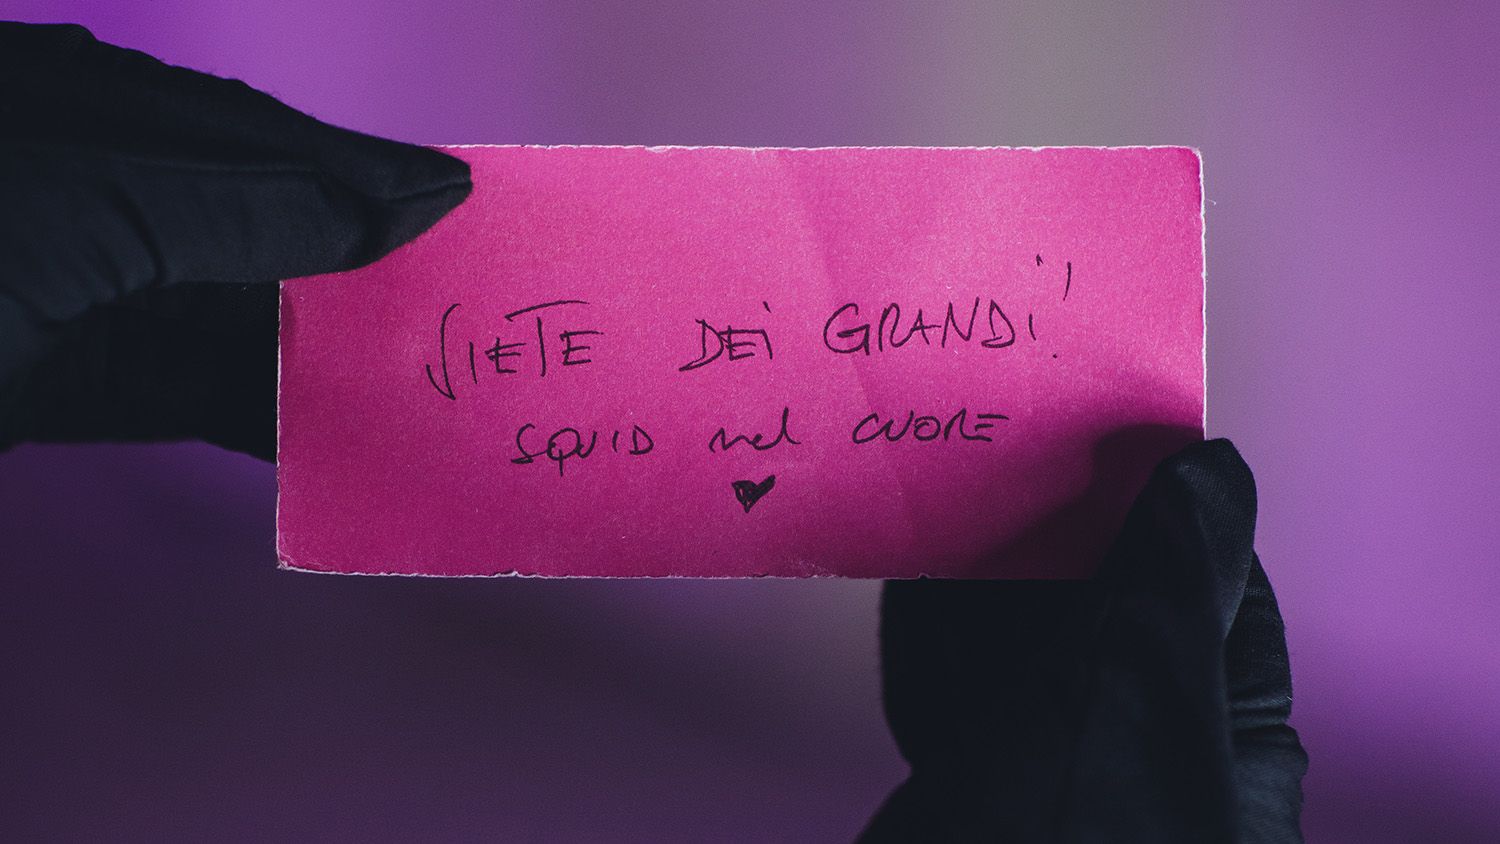 SIETE DEI GRANDI!
SQUID nel CUORE
♥